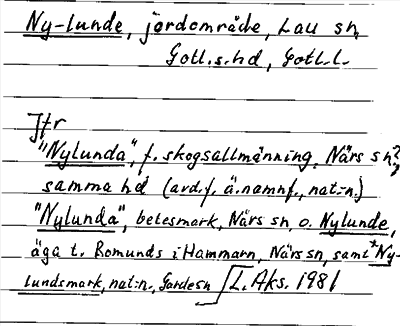 Ny-lunde, jordområde, Lau sn,
Gotl.s.hd, Gotl.l.
Jfr
"Nylunda", f. skogsallmänning, Närs sn?,
samma hd (avd.f. ä.namnf., nat:n.)
"Nylunda", betesmark, Närs sn, o. Nylunde,
äga t. Bomunds i Hammarn, Närs sn, samt *Ny-
lundsmark, nat:n., Gardesn L. Aks. 1981